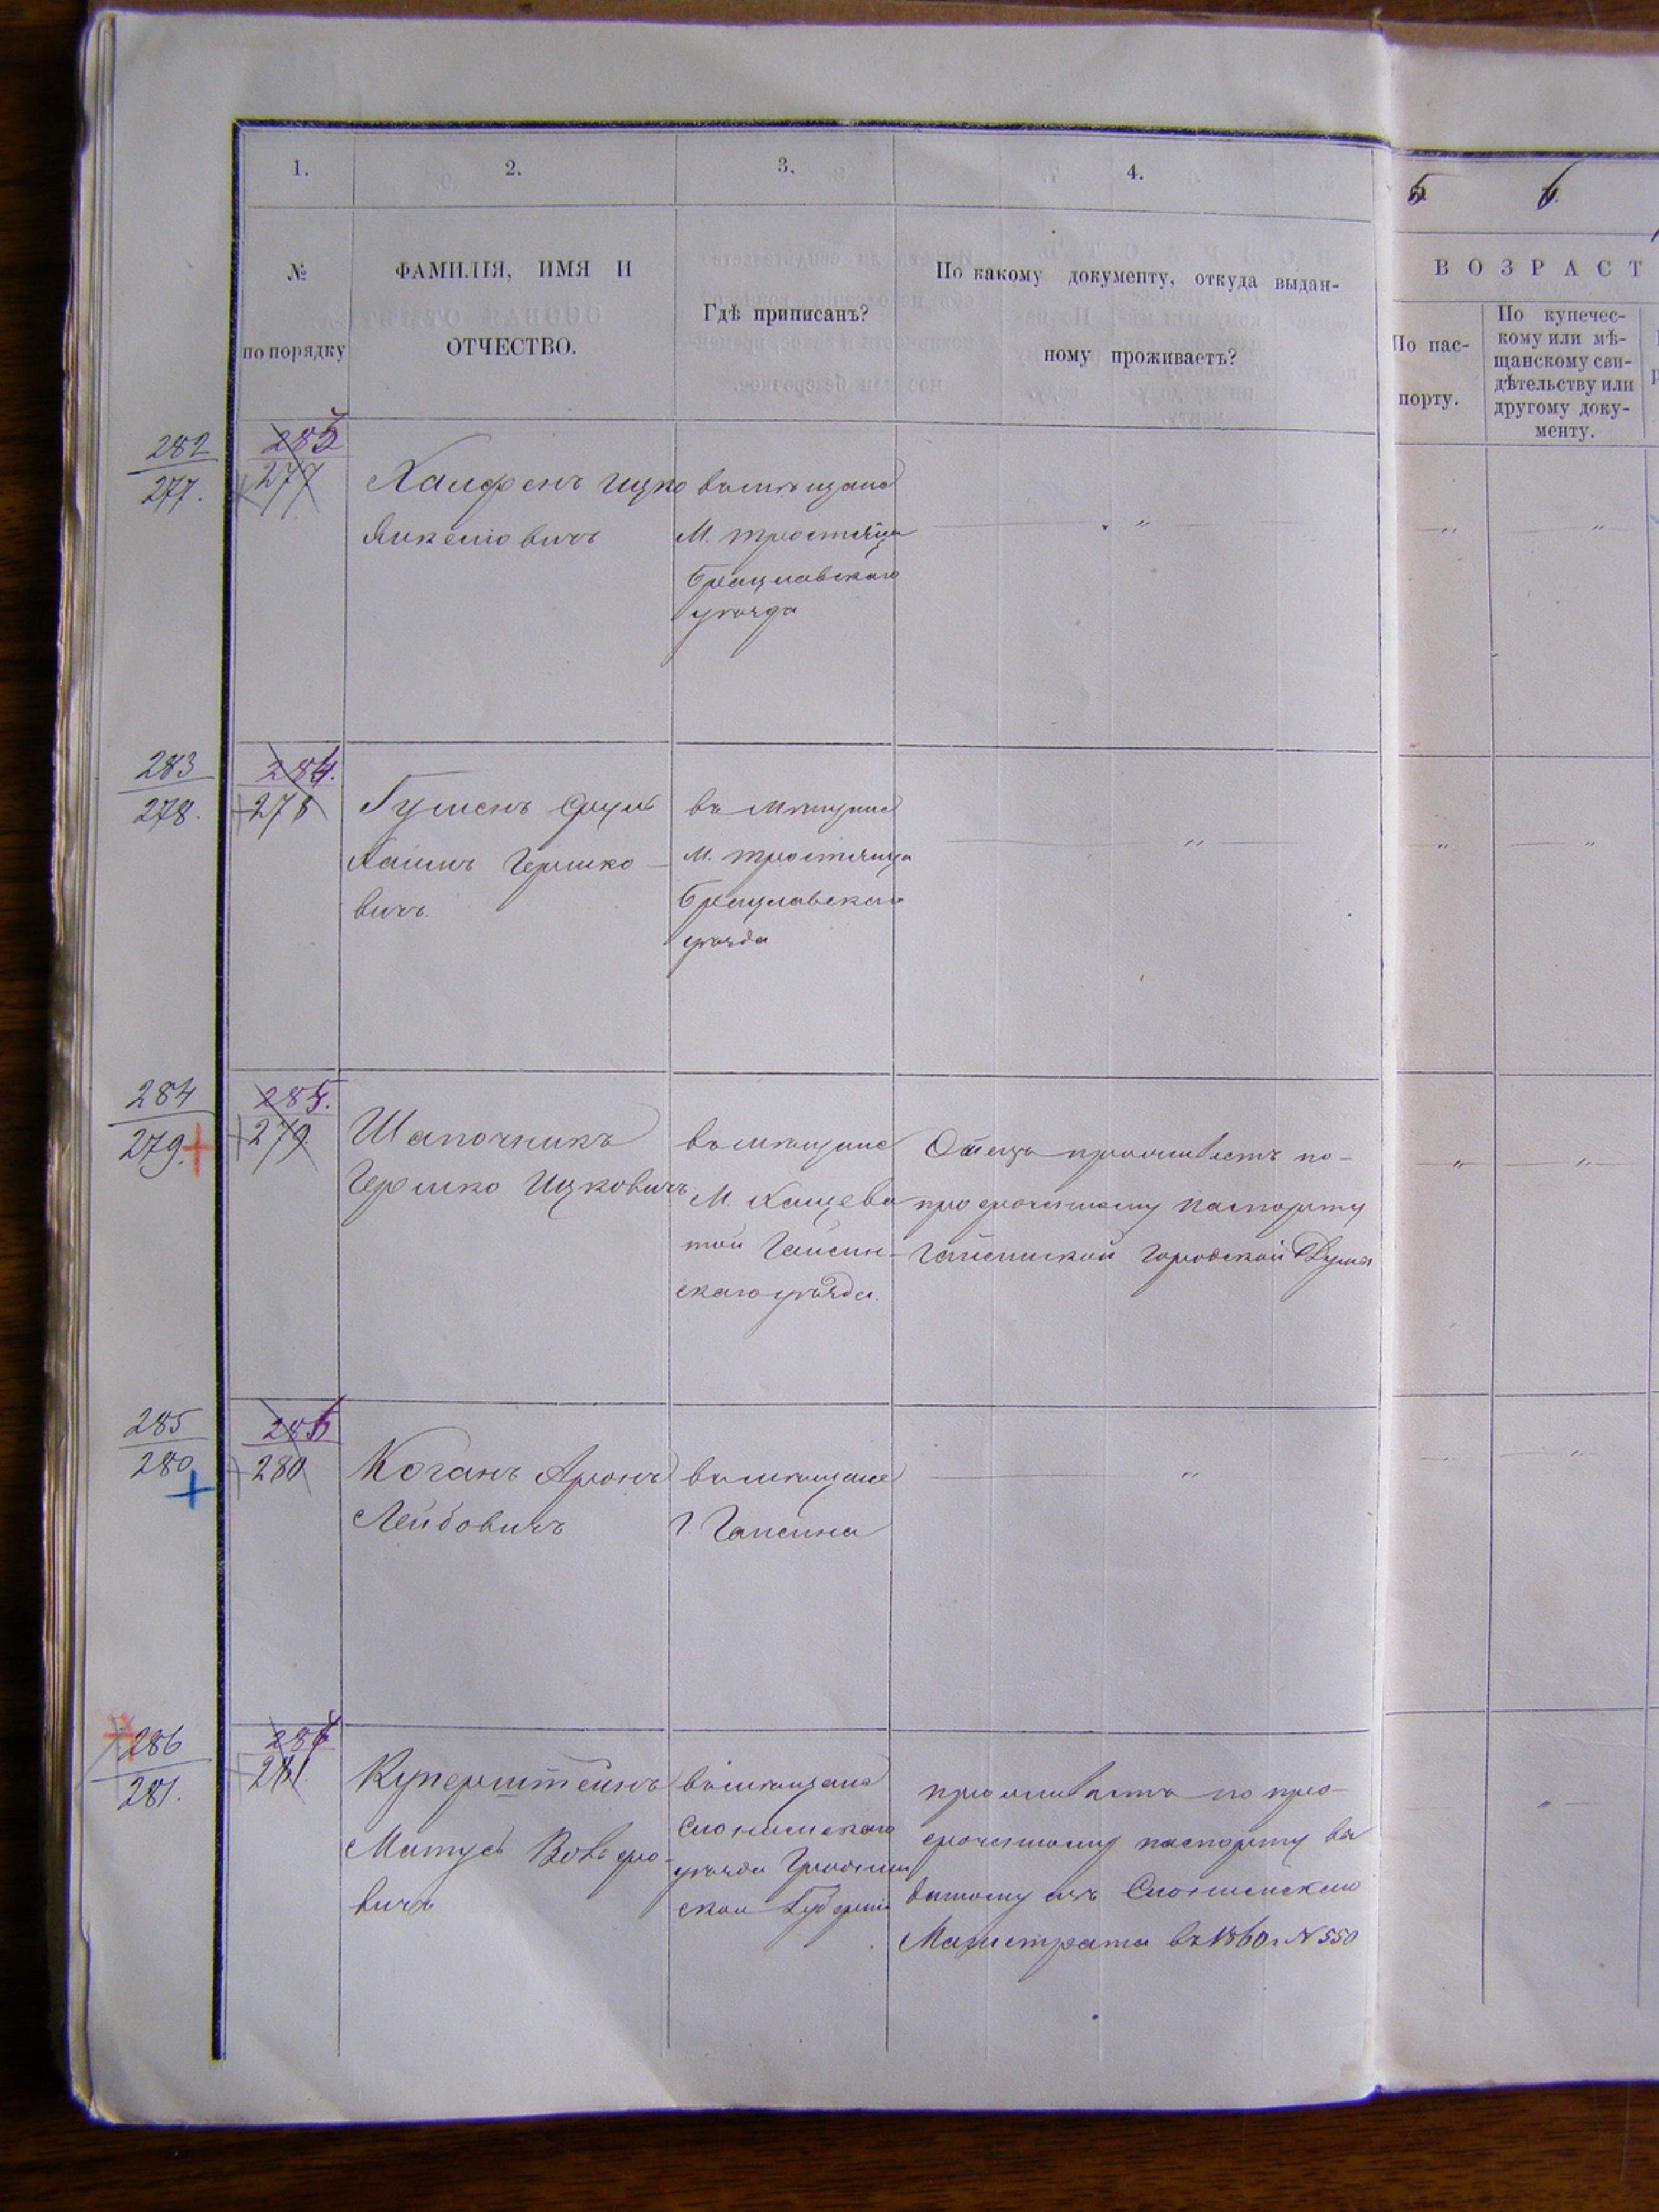 1.
2.
3.
4.
5
6.
№
по порядку
ФАМИЛІЯ, ИМЯ И
ОТЧЕСТВО.
Гдѣ приписанъ?
По какому документу, откуда выдан-
ному проживаетъ?
ВОЗРАСТ
По пас-
порту.
По купечес-
кому или мѣ-
щанскому сви-
дѣтельству или
другому доку-
менту.
282
277.
283
277
Халфенъ Ицко
Янкеліовичъ
въ мѣщане
М. Тростянца
Брацлавскаго
уѣзда
283
278.
284.
278
Гуменъ Сруль
Хаимъ Гершко-
вичъ
въ мѣщане
М. Тростянца
Брацлавскаго
уѣзда
284
279.
285.
279
Шапочникъ
Гершко Ицковичъ
въ мѣщане
М. Хащева
той Гайсин-
скаго уѣзда.
Отецъ проживаетъ по-
просроченному паспорту
Гайсинской Городской Думы
285
280
286
280
Коганъ Аронъ
Лейбовичъ
въ мѣщане
г. Гайсина
286
281.
287
281.
Куперштейнъ
Матусъ Вольфо-
вичъ
въ мѣщане
Слонимскаго
уѣзда Гроднен
ской Губерніи
проживаетъ по про-
сроченному паспорту вы
данному изъ Слонимскаго
Магистрата въ 1860 г. N 550